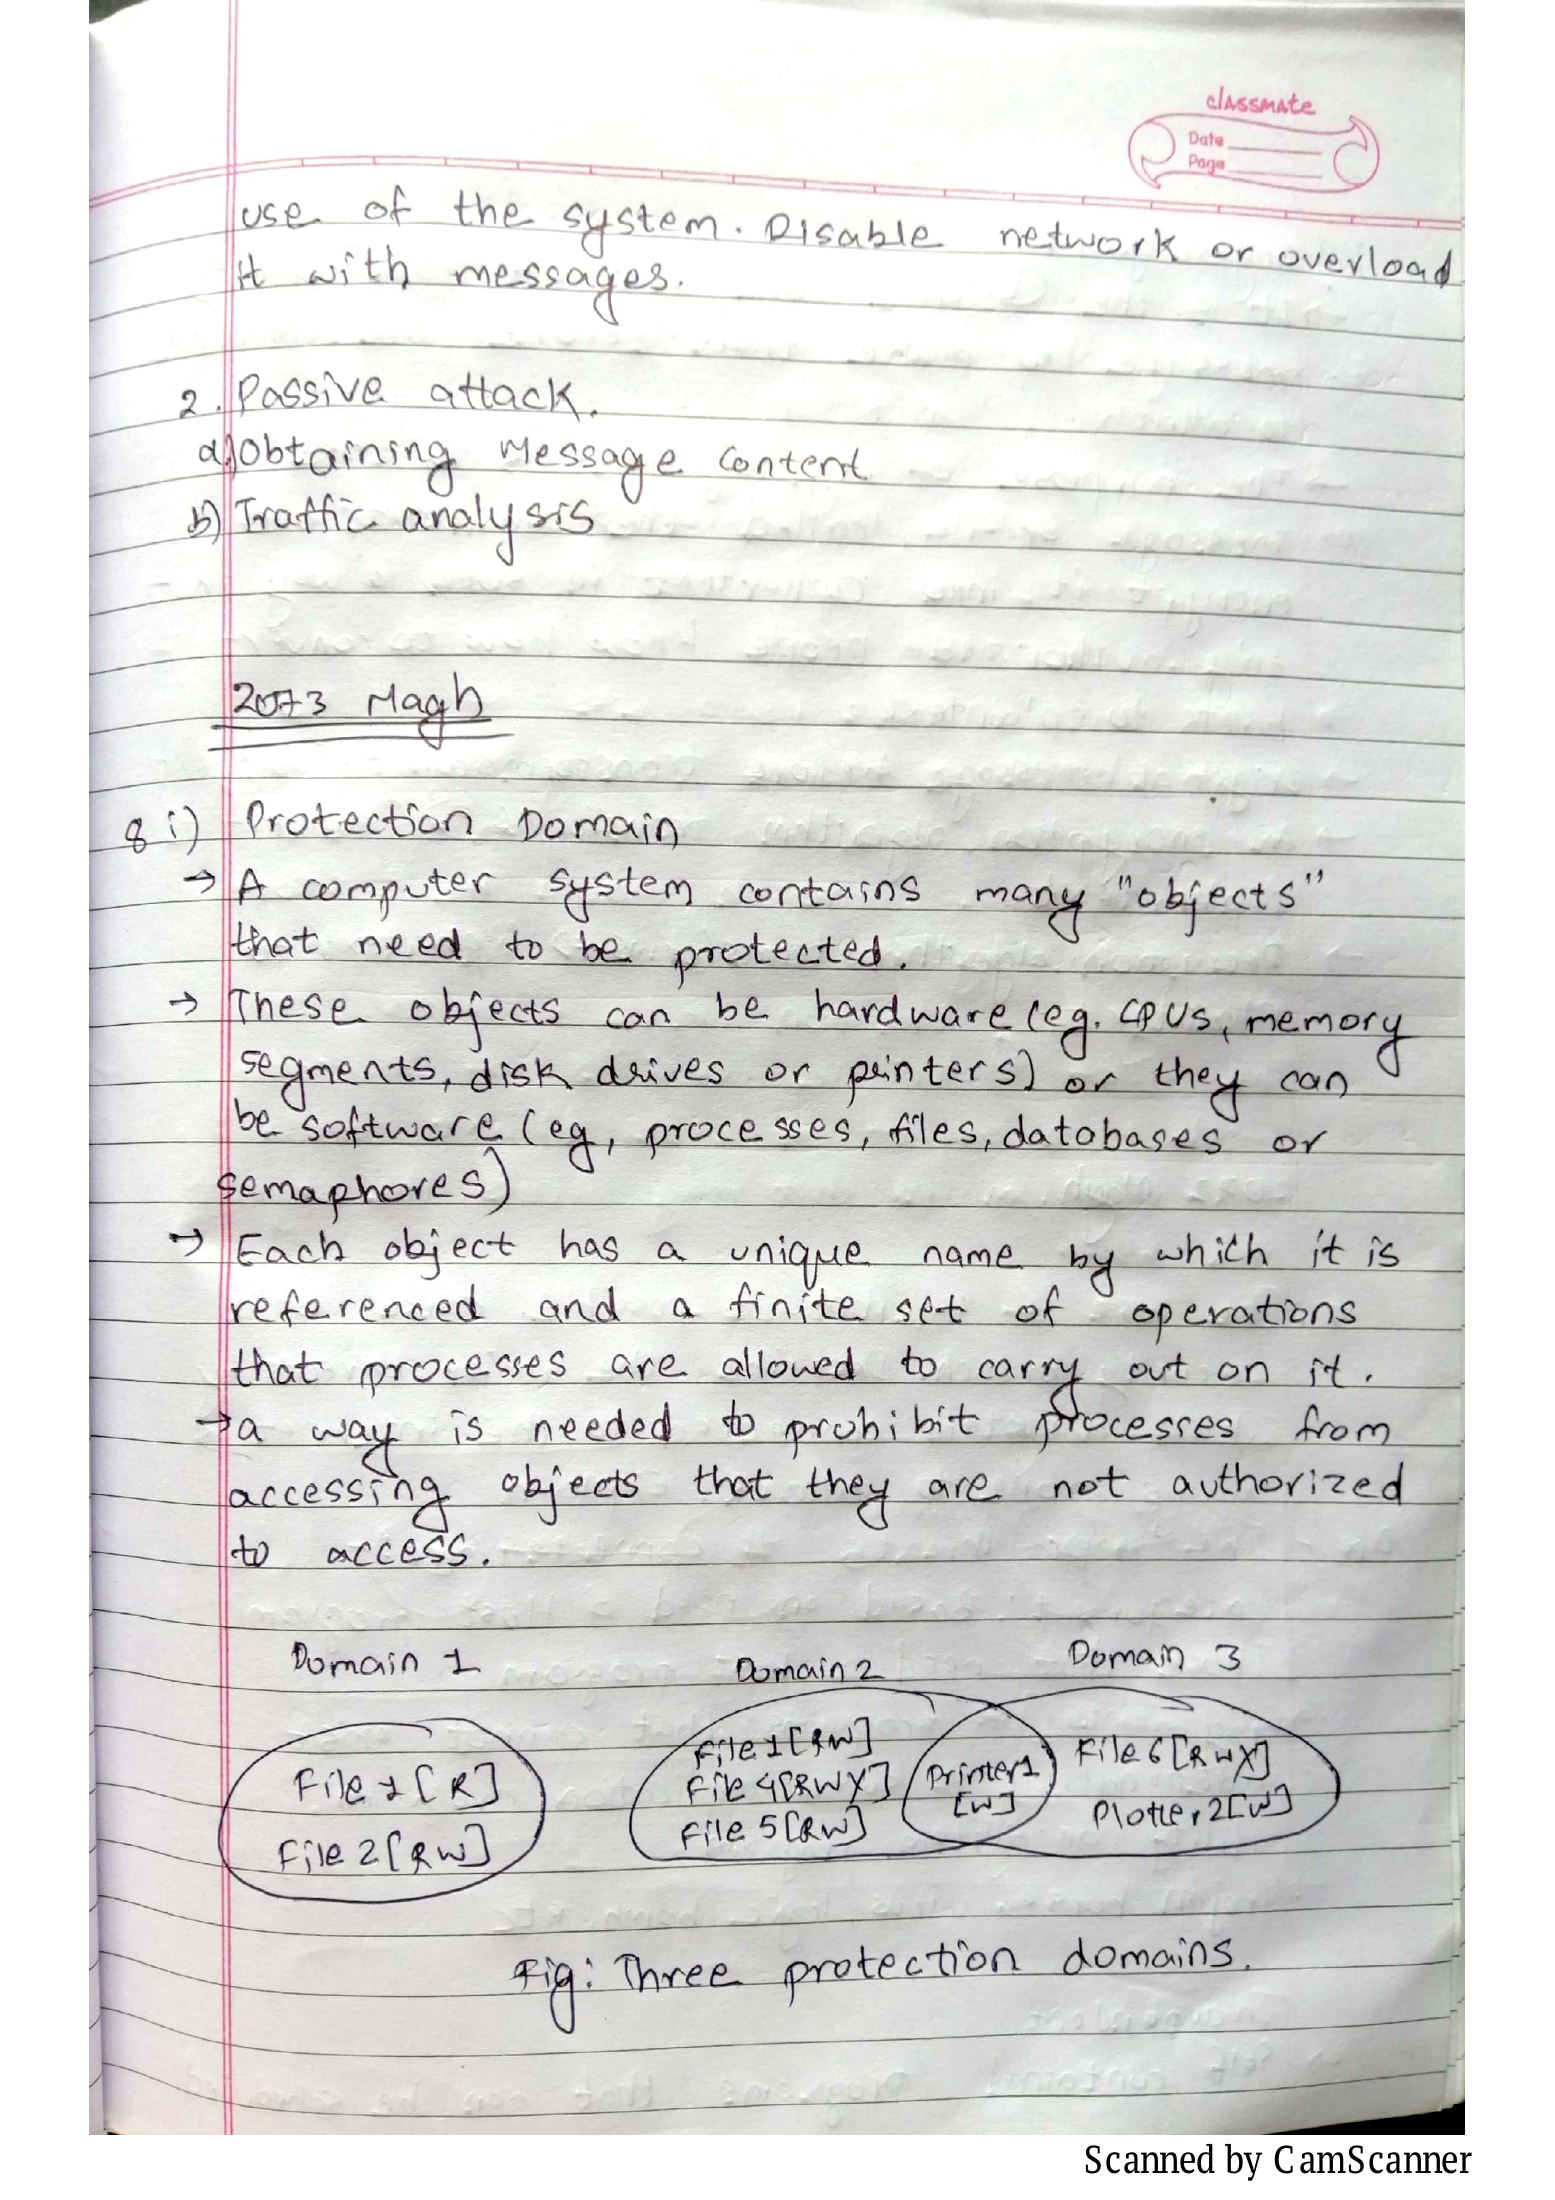 classmate
Date
Page
use of the system. Disable network or overload
it with messages.
2. Passive attack.
a) Obtaining Message Content
b) Traffic analysis
2073 Magh
8 i) Protection Domain
→ A computer system contains many "objects"
that need to be protected.
→ These objects can be hardware (eg. CPUs, memory
segments, disk drives or printers) or they can
be software (eg, processes, files, databases or
semaphores)
→ Each object has a unique name by which it is
referenced and a finite set of operations
that processes are allowed to carry out on it.
→ a way is needed to prohibit processes from
accessing objects that they are not authorized
to access.
Domain 1 Domain 2 Domain 3
File 1 [R]
File 2 [RW]
File 1 [RW]
File 4 [RWX]
File 5 [RW]
Printer 1
[W]
File 6 [RWX]
Plotter 2 [W]
Fig: Three protection domains.
Scanned by CamScanner